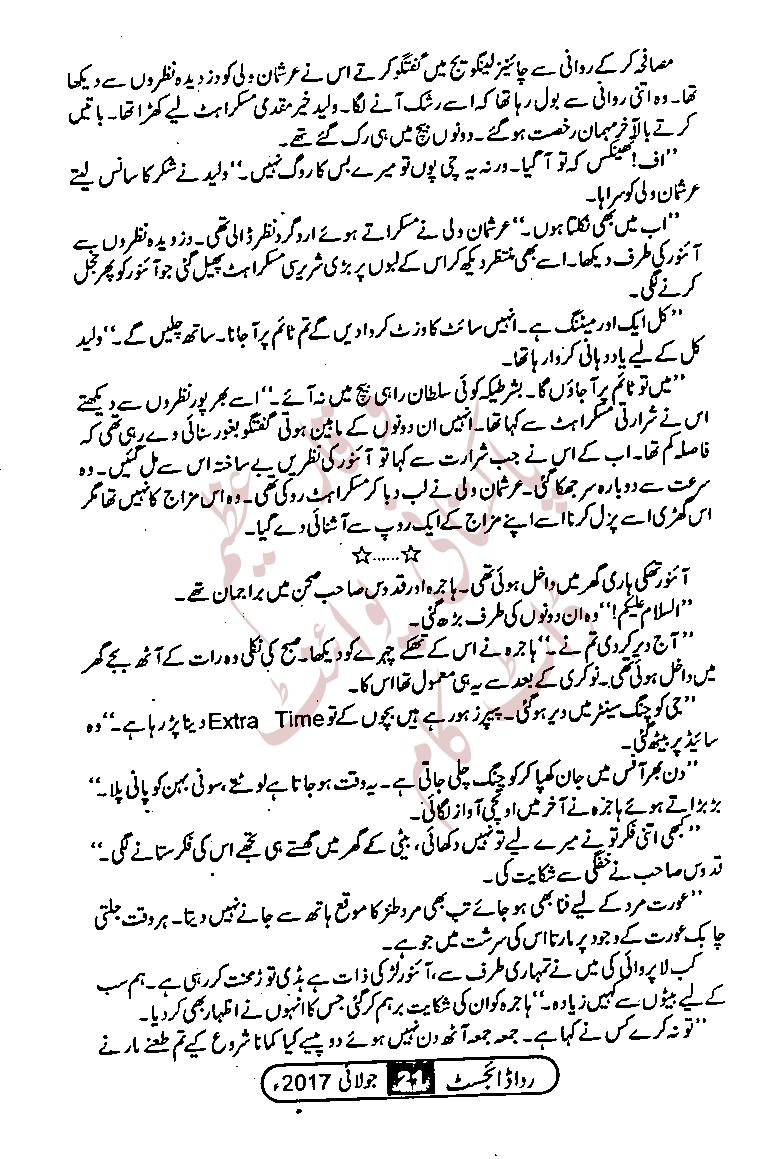 مصافحہ کر کے روانی سے چائنیز لینگویج میں گفتگو کرتے اس نے عرشان ولی کو دزدیدہ نظروں سے دیکھا
تھا۔ وہ اتنی روانی سے بول رہا تھا کہ اسے رشک آنے لگا۔ ولید خیر مقدمی مسکراہٹ لیے کھڑا تھا۔ باتیں
کرتے بالآخر مہمان رخصت ہو گئے۔ دونوں بیچ میں ہی رک گئے تھے۔
”اف! تھینکس کہ تو آ گیا۔ ورنہ یہ چی پوں تو میرے بس کا روگ نہیں۔“ ولید نے شکر کا سانس لیتے
عرشان ولی کو سراہا۔
”اب میں بھی نکلتا ہوں۔“ عرشان ولی نے مسکراتے ہوئے اردگرد نظر ڈالی تھی۔ دزدیدہ نظروں سے
آئنور کی طرف دیکھا۔ اسے بھی منتظر دیکھ کر اس کے لبوں پر بڑی شریر سی مسکراہٹ پھیل گئی جو آئنور کو پھر خجل
کرنے لگی۔
”کل ایک اور میٹنگ ہے۔ انہیں سائٹ کا وزٹ کروا دیں گے تم ٹائم پر آ جانا۔ ساتھ چلیں گے۔“ ولید
کل کے لیے یاد دہانی کروا رہا تھا۔
”میں تو ٹائم پر آ جاؤں گا۔ بشرطیکہ کوئی سلطان راہی بیچ میں نہ آئے۔“ اسے بھرپور نظروں سے دیکھتے
اس نے شرارتی مسکراہٹ سے کہا تھا۔ انہیں ان دونوں کے مابین ہوتی گفتگو بغور سنائی دے رہی تھی کہ
فاصلہ کم تھا۔ اب کے اس نے جب شرارت سے کہا تو آئنور کی نظریں بے ساختہ اس سے مل گئیں۔ وہ
سرعت سے دوبارہ سر جھکا گئی۔ عرشان ولی نے لب دبا کر مسکراہٹ روکی تھی۔ وہ اس مزاج کا نہیں تھا مگر
اس گھڑی اسے پزل کرنا اسے اپنے مزاج کے ایک روپ سے آشنائی دے گیا۔
☆......☆
آئنور تھکی ہاری گھر میں داخل ہوئی تھی۔ ہاجرہ اور قدوس صاحب صحن میں براجمان تھے۔
”السلام علیکم!“ وہ ان دونوں کی طرف بڑھ گئی۔
”آج دیر کر دی تم نے۔“ ہاجرہ نے اس کے تھکے چہرے کو دیکھا۔ صبح کی نکلی وہ رات کے آٹھ بجے گھر
میں داخل ہوئی تھی۔ نوکری کے بعد سے یہ ہی معمول تھا اس کا۔
”جی کوچنگ سینٹر میں دیر ہو گئی۔ پیپرز ہو رہے ہیں بچوں کے تو Extra Time دینا پڑ رہا ہے۔“ وہ
سائیڈ پر بیٹھ گئی۔
”دن بھر آفس میں جان کھپا کر کوچنگ چلی جاتی ہے۔ یہ وقت ہو جاتا ہے لوٹتے، سونی بہن کو پانی پلا۔“
بڑبڑاتے ہوئے ہاجرہ نے آخر میں اونچی آواز لگائی۔
”کبھی اتنی فکر تو نے میرے لیے تو نہیں دکھائی، بیٹی کے گھر میں گھستے ہی تجھے اس کی فکر ستانے لگی۔“
قدوس صاحب نے خفگی سے شکایت کی۔
”عورت مرد کے لیے فنا بھی ہو جائے تب بھی مرد طنز کا موقع ہاتھ سے جانے نہیں دیتا۔ ہر وقت جلتی
چابک عورت کے وجود پر مارنا اس کی سرشت میں جو ہے۔
کب لاپروائی کی میں نے تمہاری طرف سے، آئنور لڑکی ذات ہے ہڈی توڑ محنت کر رہی ہے۔ ہم سب
کے لیے بیٹوں سے کہیں زیادہ۔“ ہاجرہ کو ان کی شکایت برہم کر گئی جس کا انہوں نے اظہار بھی کر دیا۔
”تو نہ کرے کس نے کہا ہے۔ جمعہ جمعہ آٹھ دن نہیں ہوئے دو پیسے کیا کمانا شروع کیے تم طعنے مارنے
ردا ڈائجسٹ 21 جولائی 2017ء
پاکستانی پوائنٹ ڈاٹ کام